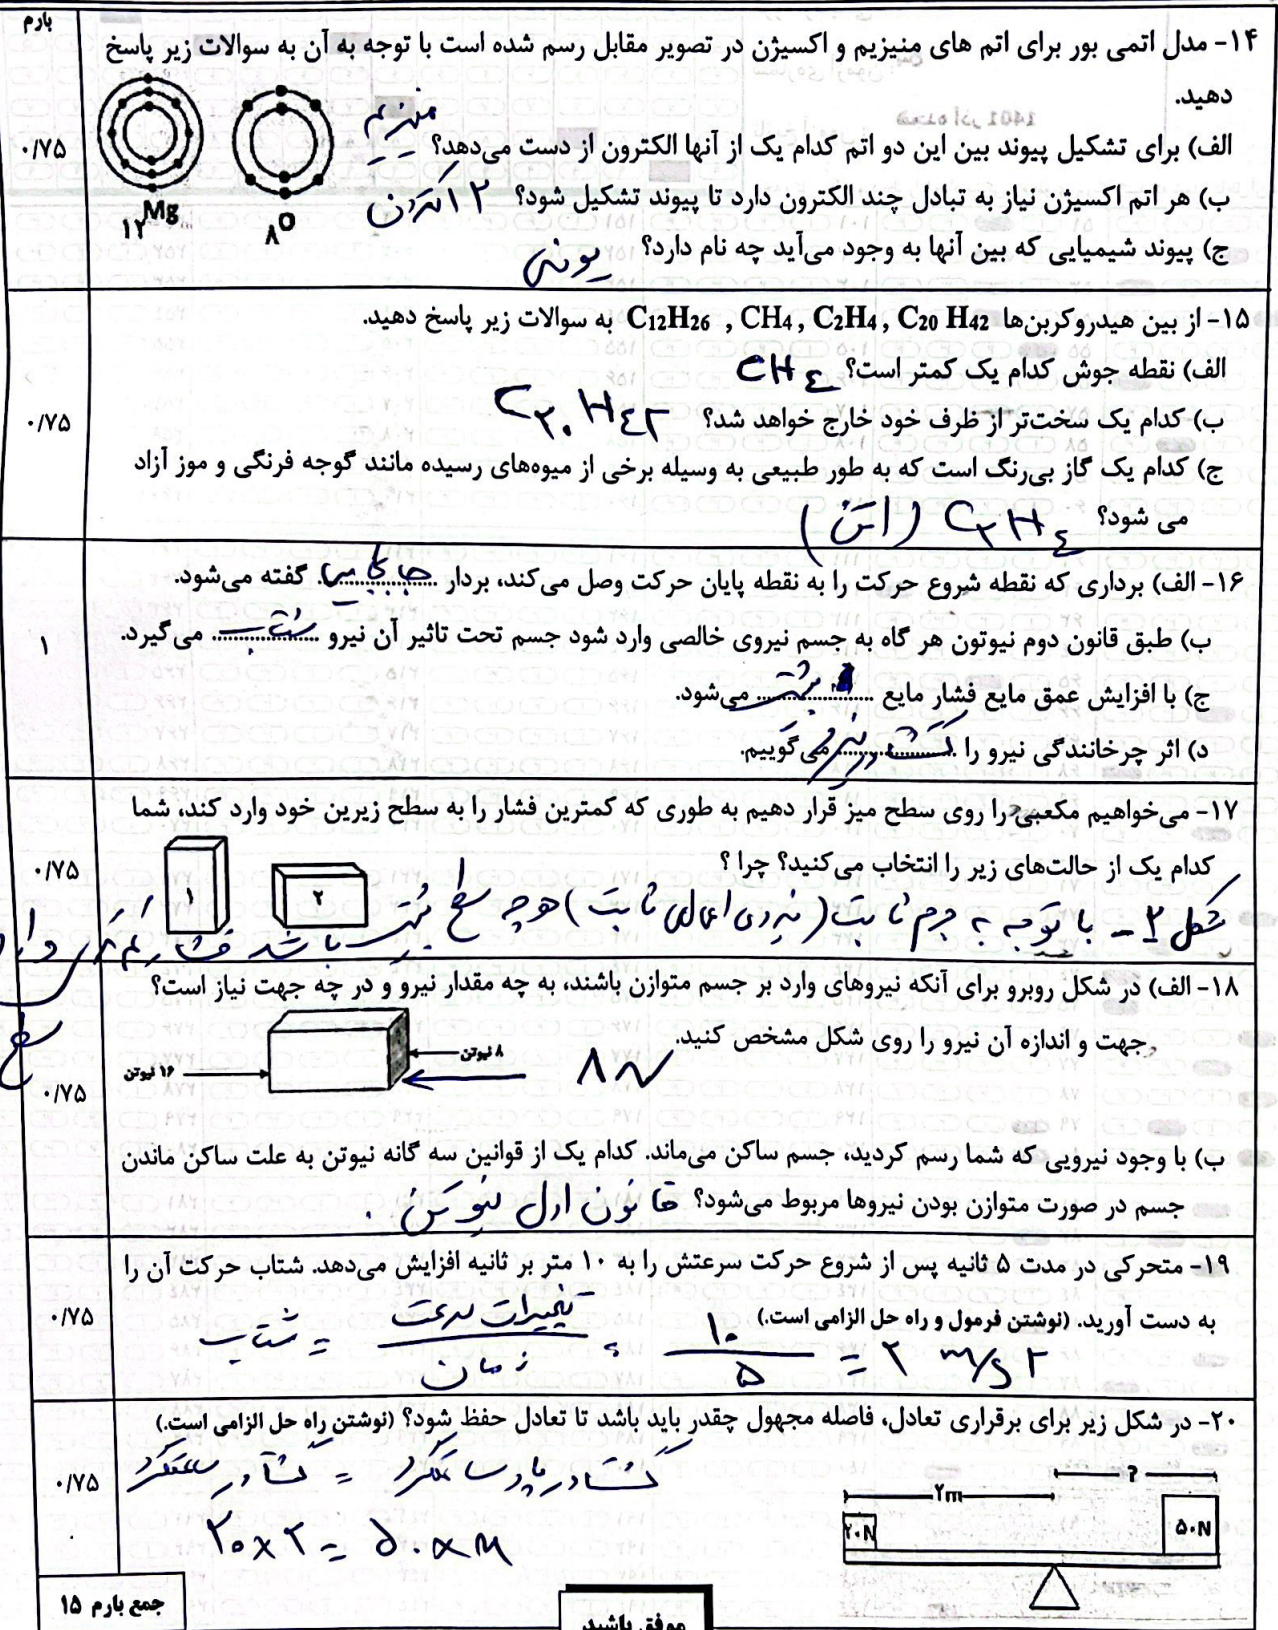 بارم
۱۴- مدل اتمی بور برای اتم های منیزیم و اکسیژن در تصویر مقابل رسم شده است با توجه به آن به سوالات زیر پاسخ
دهید.
الف) برای تشکیل پیوند بین این دو اتم کدام یک از آنها الکترون از دست می‌دهد؟ منیزیم
۰/۷۵
ب) هر اتم اکسیژن نیاز به تبادل چند الکترون دارد تا پیوند تشکیل شود؟ ۲ الکترون
۱۲Mg
۸O
ج) پیوند شیمیایی که بین آنها به وجود می‌آید چه نام دارد؟ یونی
۱۵- از بین هیدروکربن‌ها C12H26 , CH4 , C2H4 , C20 H42 به سوالات زیر پاسخ دهید.
الف) نقطه جوش کدام یک کمتر است؟ CH۴
ب) کدام یک سخت‌تر از ظرف خود خارج خواهد شد؟ C۲۰H۴۲
۰/۷۵
ج) کدام یک گاز بی‌رنگ است که به طور طبیعی به وسیله برخی از میوه‌های رسیده مانند گوجه فرنگی و موز آزاد
می شود؟ C۲H۴ (اتن)
۱۶- الف) برداری که نقطه شروع حرکت را به نقطه پایان حرکت وصل می‌کند، بردار جابجایی گفته می‌شود.
ب) طبق قانون دوم نیوتون هر گاه به جسم نیروی خالصی وارد شود جسم تحت تاثیر آن نیرو شتاب می گیرد.
۱
ج) با افزایش عمق مایع فشار مایع بیشتر می‌شود.
د) اثر چرخانندگی نیرو را گشتاور نیرو می گوییم.
۱۷- می‌خواهیم مکعبی را روی سطح میز قرار دهیم به طوری که کمترین فشار را به سطح زیرین خود وارد کند، شما
کدام یک از حالت‌های زیر را انتخاب می‌کنید؟ چرا ؟
۰/۷۵
۱
۲
شکل ۲ - با توجه به جرم ثابت (نیروی اعمالی ثابت) هر چه سطح بیشتر باشد فشار کم‌تری وارد
سطح
۱۸- الف) در شکل روبرو برای آنکه نیروهای وارد بر جسم متوازن باشند، به چه مقدار نیرو و در چه جهت نیاز است؟
جهت و اندازه آن نیرو را روی شکل مشخص کنید.
۸ نیوتن
۱۶ نیوتن
۸N
۰/۷۵
ب) با وجود نیرویی که شما رسم کردید، جسم ساکن می‌ماند. کدام یک از قوانین سه گانه نیوتن به علت ساکن ماندن
جسم در صورت متوازن بودن نیروها مربوط می‌شود؟ قانون اول نیوتن .
۱۹- متحرکی در مدت ۵ ثانیه پس از شروع حرکت سرعتش را به ۱۰ متر بر ثانیه افزایش می‌دهد. شتاب حرکت آن را
به دست آورید. (نوشتن فرمول و راه حل الزامی است.)
۰/۷۵
شتاب = تغییرات سرعت / زمان
۱۰ / ۵ = ۲ m/s۲
۲۰- در شکل زیر برای برقراری تعادل، فاصله مجهول چقدر باید باشد تا تعادل حفظ شود؟ (نوشتن راه حل الزامی است.)
گشتاور پادساعتگرد = گشتاور ساعتگرد
۰/۷۵
۲۰×۲ = ۵۰×
?
۲m
۲۰N
۵۰N
جمع بارم ۱۵
موفق باشید